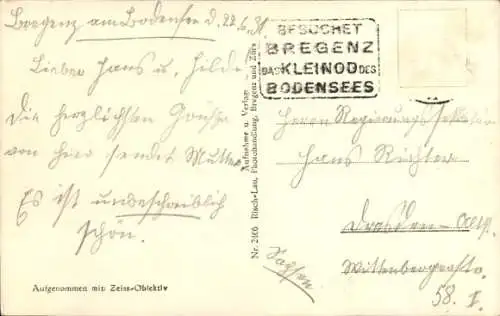 Bregenz am Bodensee d. 22.6.31
Lieber Hans u. Hilde
Die herzlichsten Grüße
von hier sendet Mutter
Es ist unbeschreiblich
schön.
Aufgenommen mit Zeiss-Objektiv
Nr. 2406 Risch-Lau, Photohandlung, Bregenz und Zürs
Aufnahme u. Verlag
BESUCHET
BREGENZ
DAS KLEINOD DES
BODENSEES
Herrn Regierungs
Hans Richter
Dresden-Altst.
Wittenbergerstr.
58. I.
Sachsen